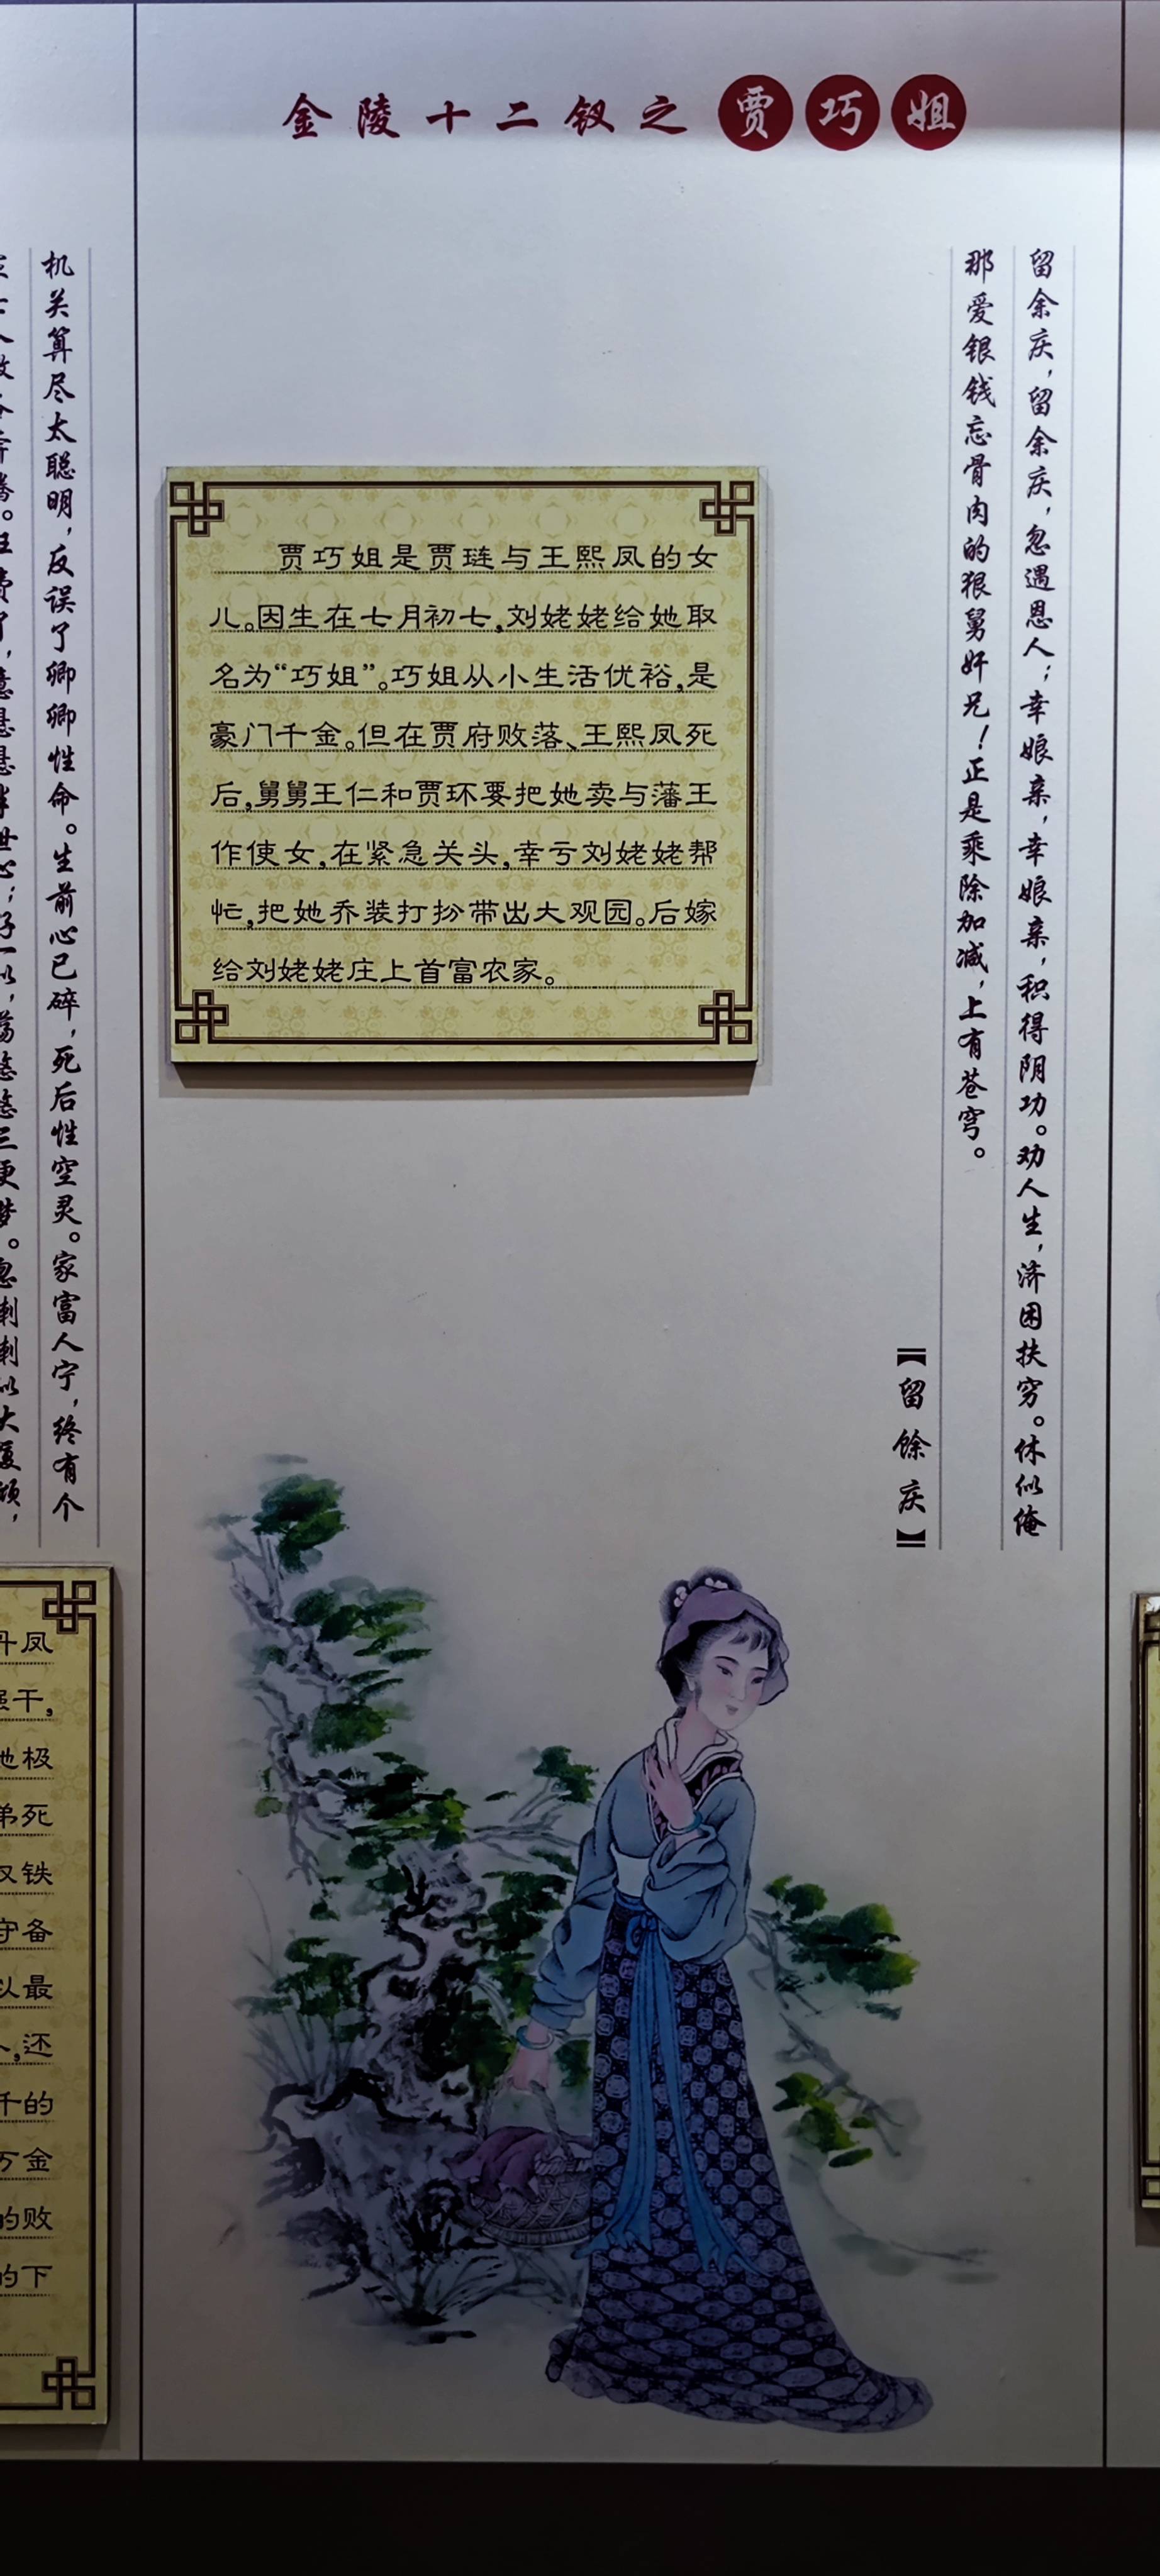 金陵十二钗之贾巧姐
留余庆，留余庆，忽遇恩人；幸娘亲，幸娘亲，积得阴功。劝人生，济困扶穷。休似俺
那爱银钱忘骨肉的狠舅奸兄！正是乘除加减，上有苍穹。
【留馀庆】
贾巧姐是贾琏与王熙凤的女
儿。因生在七月初七，刘姥姥给她取
名为“巧姐”。巧姐从小生活优裕，是
豪门千金。但在贾府败落、王熙凤死
后，舅舅王仁和贾环要把她卖与藩王
作使女，在紧急关头，幸亏刘姥姥帮
忙，把她乔装打扮带出大观园。后嫁
给刘姥姥庄上首富农家。
机关算尽太聪明，反误了卿卿性命。生前心已碎，死后性空灵。家富人宁，终有个
丹凤
干，
极
弟死
铁
守备
以最
，还
千的
万金
的败
的下